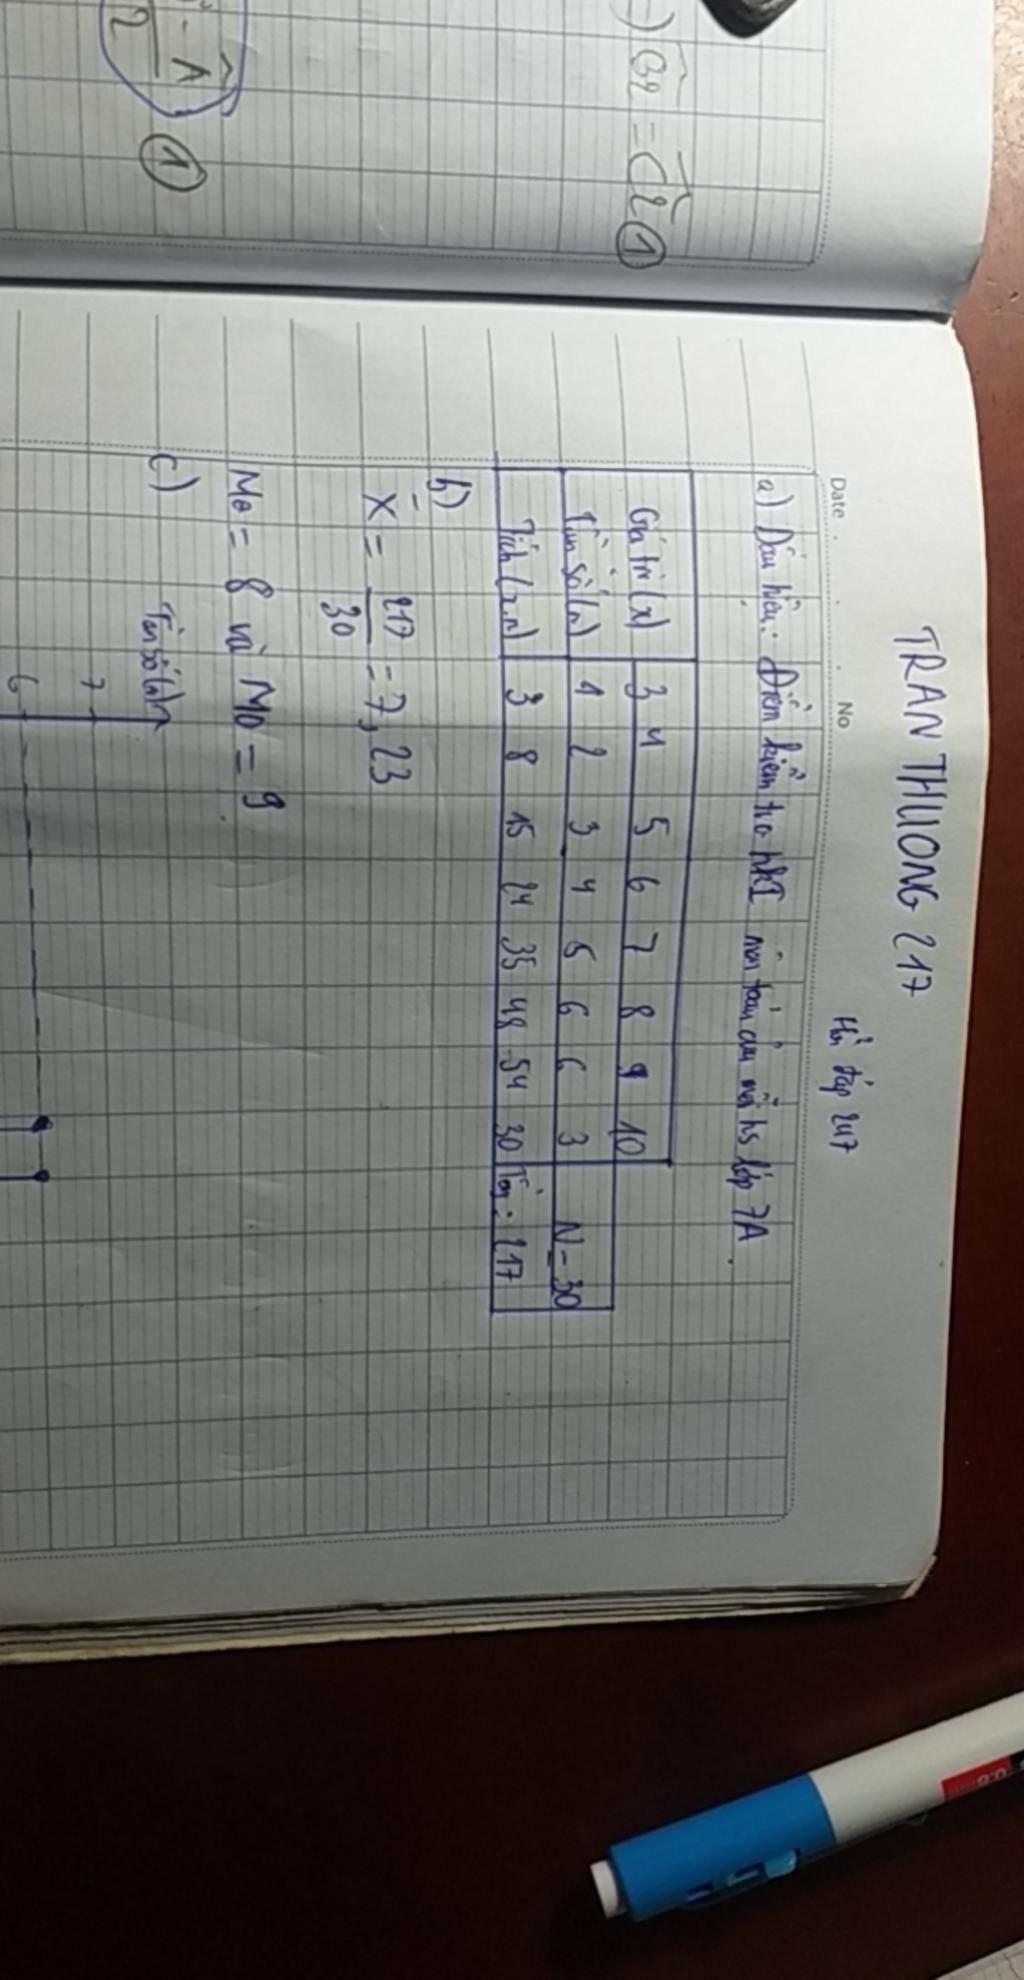 2 = C2 ①
- A
2
①
TRAN THUONG 217
Hỏi đáp 247
Date . No
a) Dấu hiệu: Điểm kiểm tra hkI môn toán của mỗi hs lớp 7A.
Giá trị (x) 3 4 5 6 7 8 9 10
Tần số (n) 1 2 3 4 5 6 6 3 N = 30
Tích (x.n) 3 8 15 24 35 48 54 30 Tổng: 217
b)
X̄ = 217/30 = 7,23
M₀ = 8 và M₀ = 9
c)
Tần số (n)
7
6
0.6